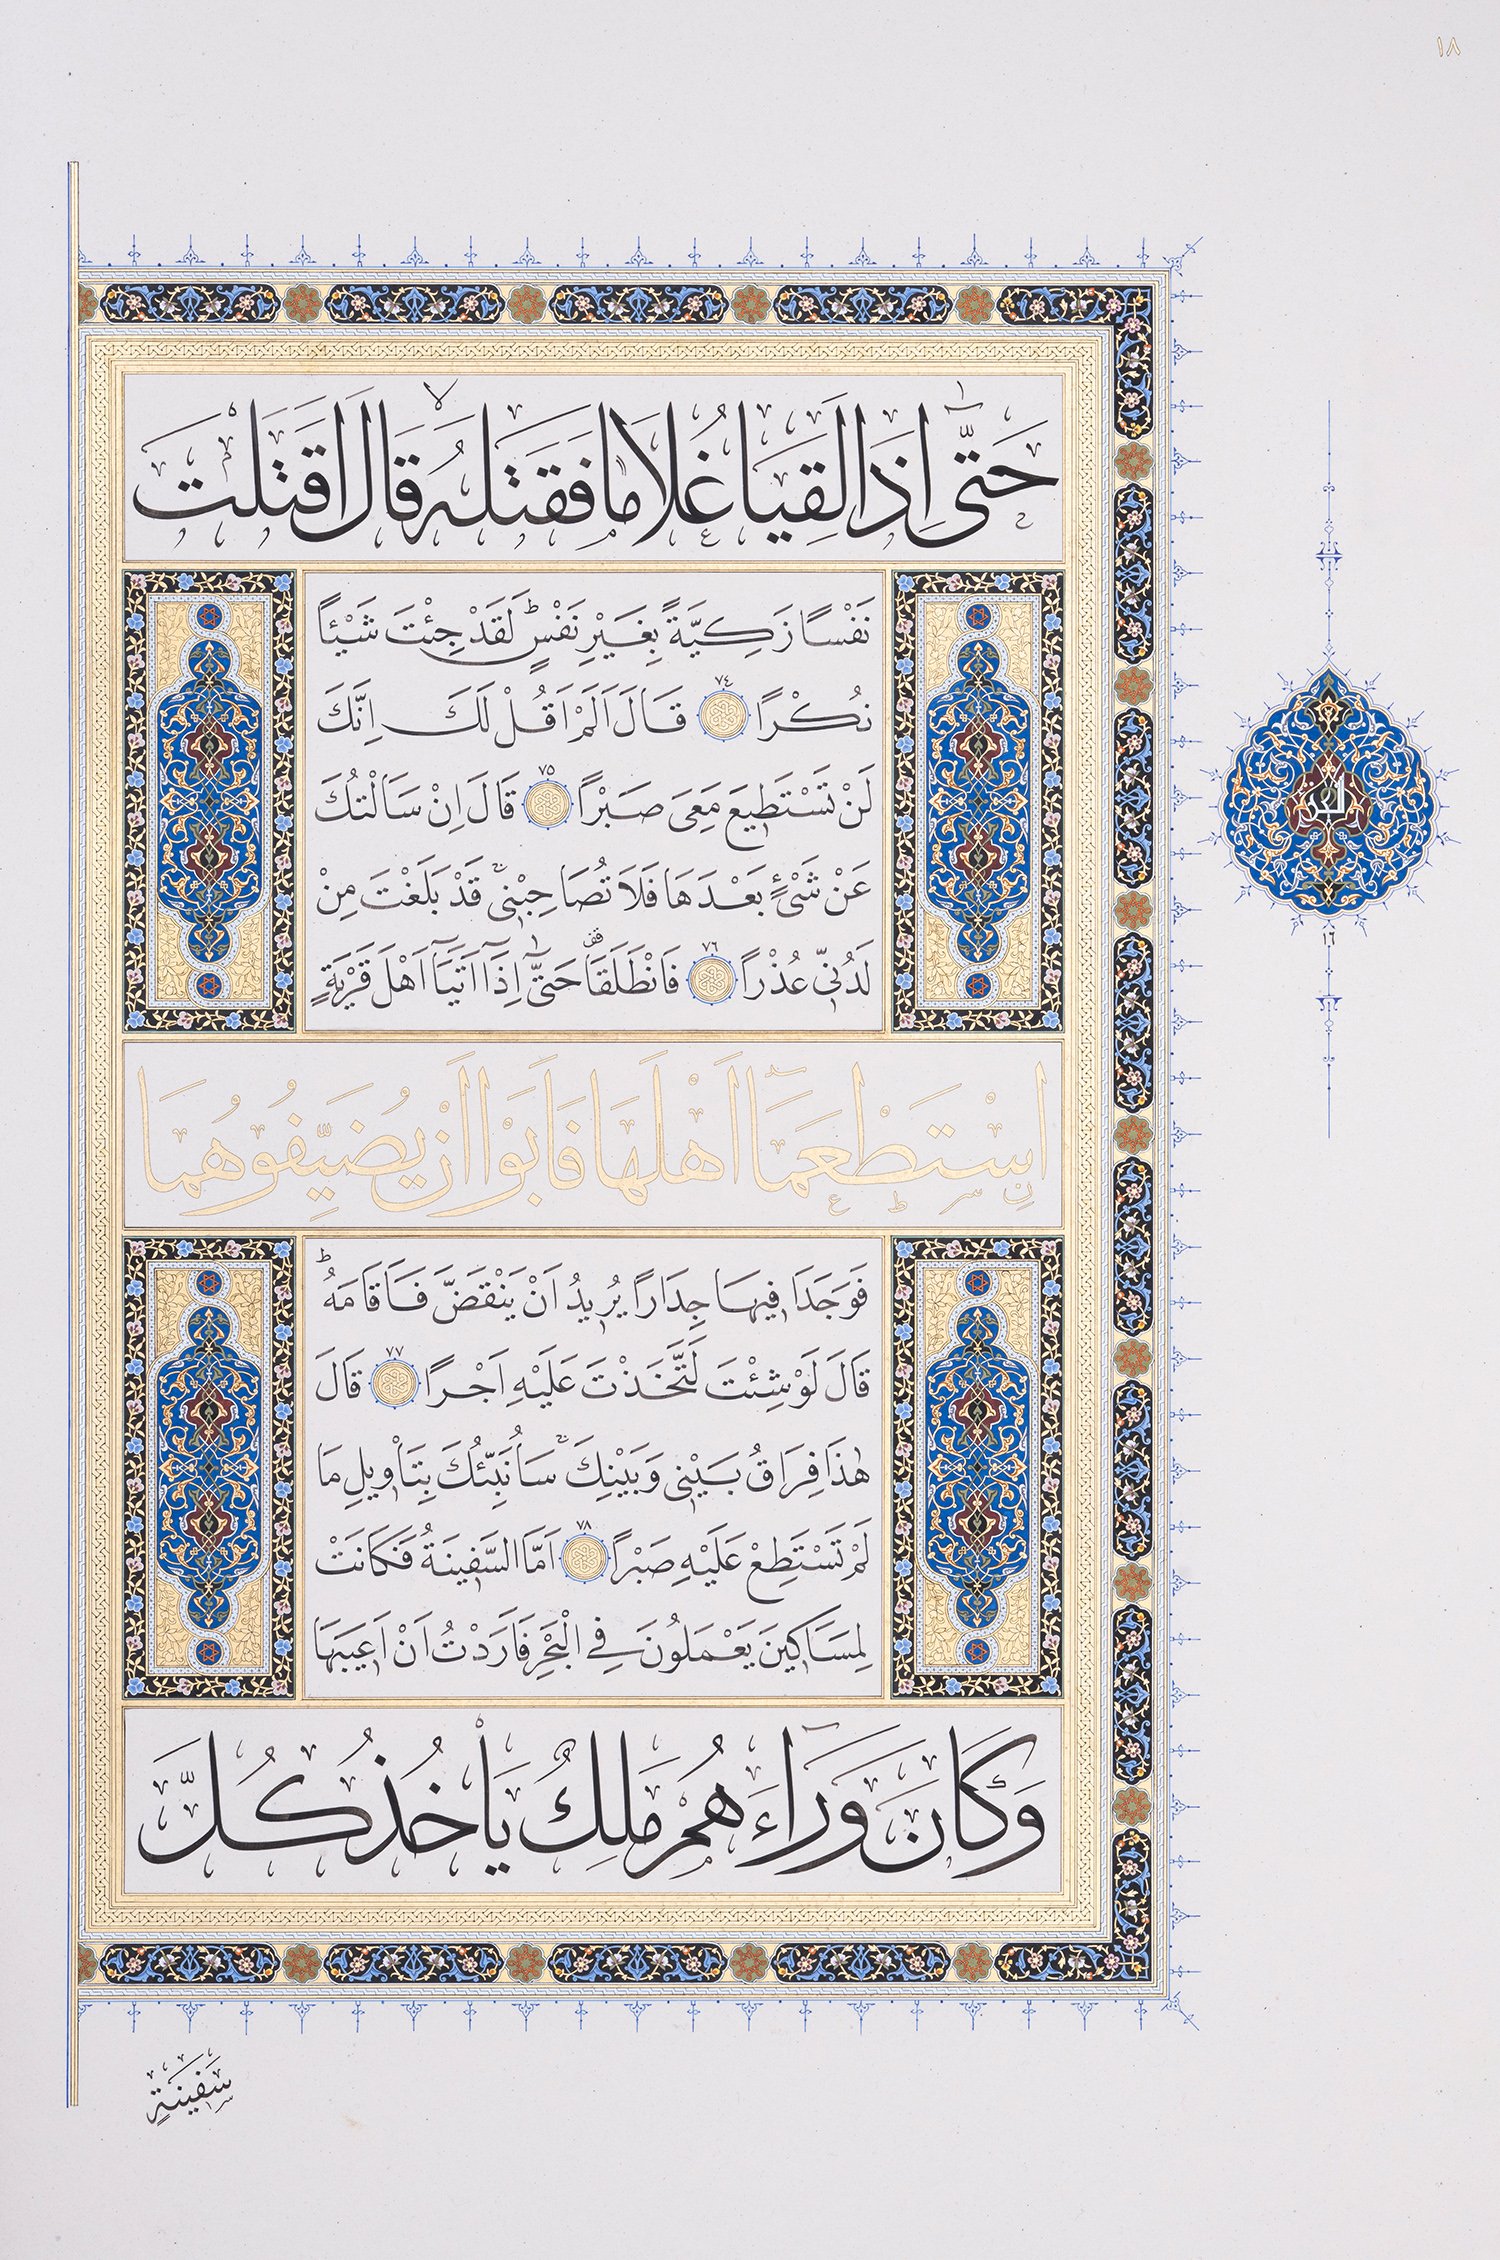 ١٨
حَتّٰٓى اِذَا لَقِيَا غُلَامًا فَقَتَلَهُ قَالَ اَقَتَلْتَ
نَفْسًا زَكِيَّةً بِغَيْرِ نَفْسٍ لَقَدْ جِئْتَ شَيْئًا
نُكْرًا ٧٤ قَالَ اَلَمْ اَقُلْ لَكَ اِنَّكَ
لَنْ تَسْتَطٖيعَ مَعِىَ صَبْرًا ٧٥ قَالَ اِنْ سَاَلْتُكَ
عَنْ شَىْءٍ بَعْدَهَا فَلَا تُصَاحِبْنٖى قَدْ بَلَغْتَ مِنْ
لَدُنّٖى عُذْرًا ٧٦ فَانْطَلَقَا حَتّٰٓى اِذَٓا اَتَيَٓا اَهْلَ قَرْيَةٍ
اِسْتَطْعَمَٓا اَهْلَهَا فَاَبَوْا اَنْ يُضَيِّفُوهُمَا
فَوَجَدَا فٖيهَا جِدَارًا يُرٖيدُ اَنْ يَنْقَضَّ فَاَقَامَهُ
قَالَ لَوْ شِئْتَ لَتَّخَذْتَ عَلَيْهِ اَجْرًا ٧٧ قَالَ
هٰذَا فِرَاقُ بَيْنٖى وَبَيْنِكَ سَاُنَبِّئُكَ بِتَأْوٖيلِ مَا
لَمْ تَسْتَطِعْ عَلَيْهِ صَبْرًا ٧٨ اَمَّا السَّفٖينَةُ فَكَانَتْ
لِمَسَاكٖينَ يَعْمَلُونَ فِي الْبَحْرِ فَاَرَدْتُ اَنْ اَعٖيبَهَا
وَكَانَ وَرَٓاءَهُمْ مَلِكٌ يَأْخُذُ كُلَّ
سَفٖينَةٍ
الجزء
١٦